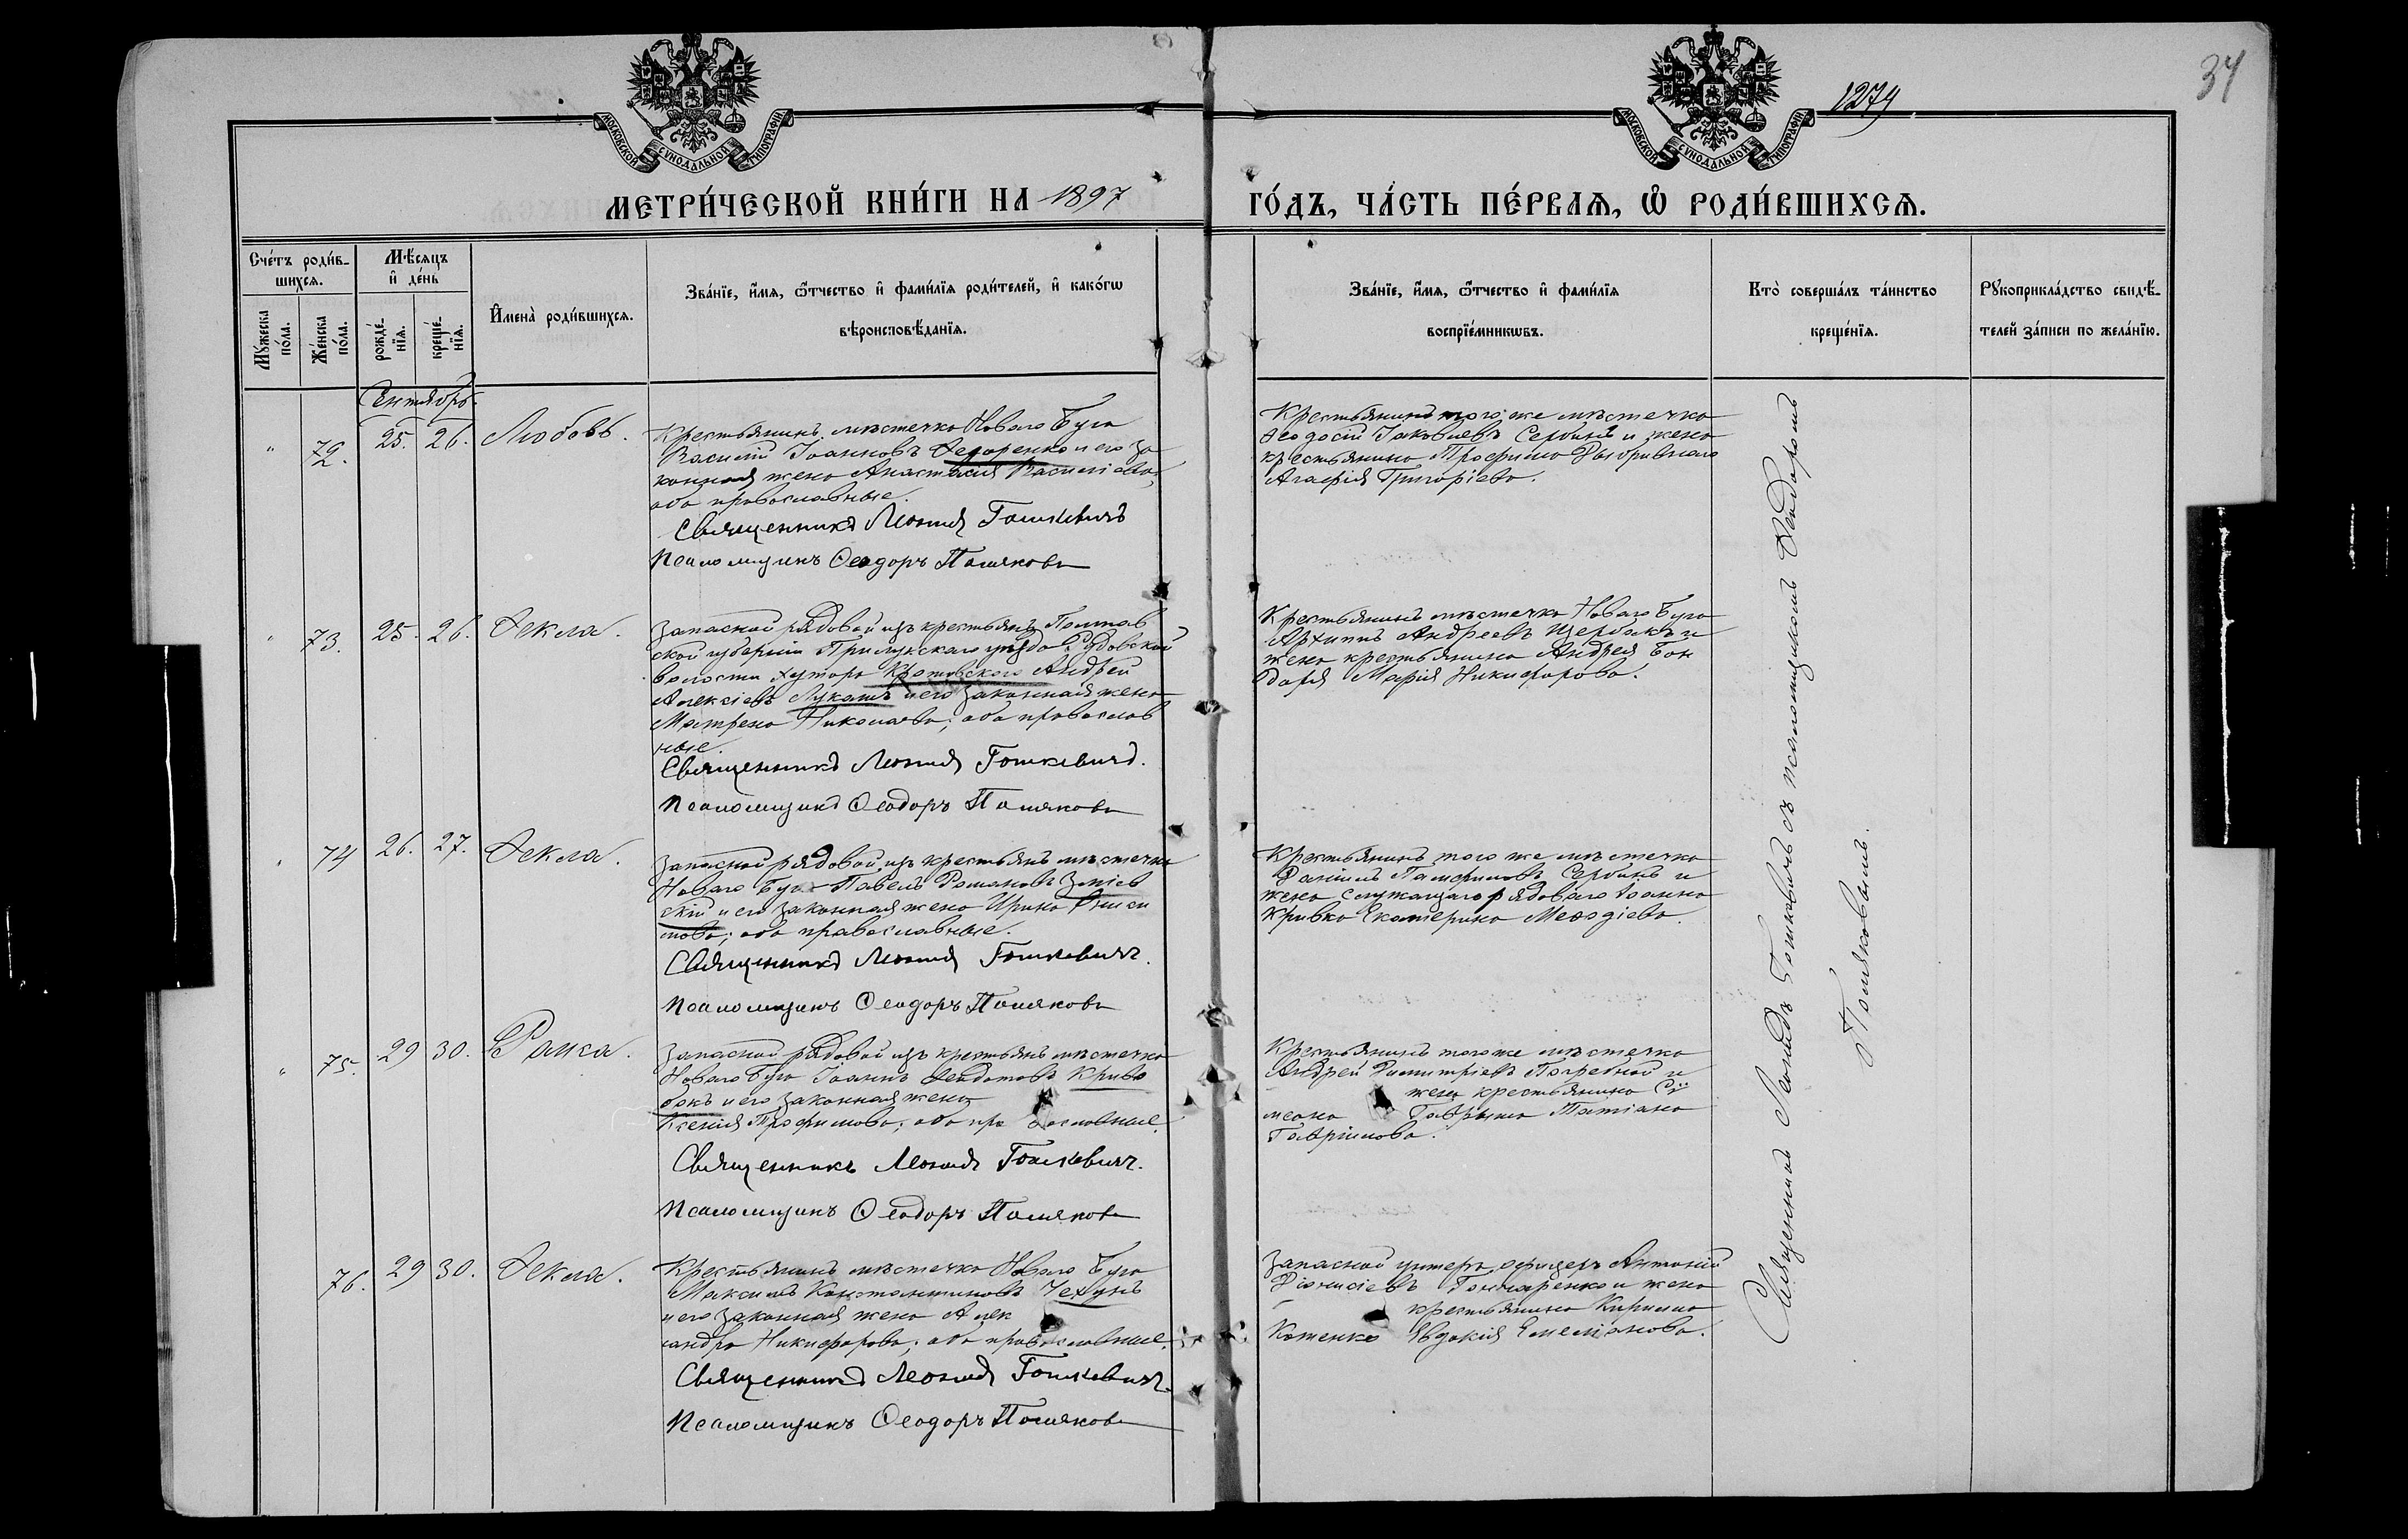 34
1279
МОСКОВСКОЙ СУНОДАЛЬНОЙ ТИПОГРАФІИ
МОСКОВСКОЙ СУНОДАЛЬНОЙ ТИПОГРАФІИ
МЕТРИ́ЧЕСКОЙ КНИ́ГИ НА 1897
ГО́ДЪ, ЧА́СТЬ ПЕ́РВАѦ, Ѡ҆ РОДИ́ВШИХСѦ.
Сче́тъ роди́в-
шихсѧ.
Мꙋ́жеска по́ла.
Же́нска по́ла.
Мѣ́сѧцъ
и҆ де́нь
рожде́-
нїѧ.
креще́-
нїѧ.
И҆мена̀ роди́вшихсѧ.
Зва́нїе, и҆́мѧ, ѻ҆́тчество и҆ фами́лїѧ роди́телей, и҆ како́гѡ
вѣроисповѣ́данїѧ.
Зва́нїе, и҆́мѧ, ѻ҆́тчество и҆ фами́лїѧ
воспрїе́мникѡвъ.
Кто̀ соверша́лъ та́инство
креще́нїѧ.
Рꙋкоприкла́дство свидѣ́-
телей за́писи по жела́нїю.
Сентябрь
" 72. 25. 26. Любовь.
Крестьянинъ мѣстечка Новаго Буга
Василій Іоанновъ Федоренко и его за
конная жена Анастасія Василіева,
оба православные.
Священникъ Леонидъ Гошкевичъ
Псаломщикъ Ѳеодоръ Поляковъ
Крестьянинъ того же мѣстечка
Ѳеодосій Іаковлевъ Сербинъ и жена
крестьянина Трофима
Агафія Григоріева.
" 73. 25. 26. Ѳекла.
Запасной рядовой изъ крестьянъ Полтав
ской губерніи Прилукскаго уѣзда Рудовской
волости хутора Кротовскаго Андрей
Алексіевъ Лукашъ и его законная жена
Матрена Николаева; оба православ
ные.
Священникъ Леонидъ Гошкевичъ.
Псаломщикъ Ѳеодоръ Поляковъ
Крестьянинъ мѣстечка Новаго Буга
Архипъ Андреевъ Щербакъ и
жена крестьянина Андрея Бон
даря Марія Никифорова.
" 74 26. 27. Ѳекла.
Запасной рядовой изъ крестьянъ мѣстечка
Новаго Буга Павелъ Романовъ Зміев
скій и его законная жена Ирина
това; оба православные.
Священникъ Леонидъ Гошкевичъ.
Псаломщикъ Ѳеодоръ Поляковъ
Крестьянинъ того же мѣстечка
Даніилъ Памфиловъ Сербинъ и
жена служащаго рядоваго Іоанна
Кривка Екатерина Меѳодіева.
" 75. 29 30. Раиса.
Запасной рядовой изъ крестьянъ мѣстечка
Новаго Буга Іоаннъ Ѳеодотовъ Криво
бокъ и его законная жена
Ксенія Трофимова; оба православные.
Священникъ Леонидъ Гошкевичъ.
Псаломщикъ Ѳеодоръ Поляковъ
Крестьянинъ того же мѣстечка
Андрей Димитріевъ Погребной и
жена крестьянина Си
меона Гавриша Татіана
Гавріилова.
76. 29 30. Ѳекла.
Крестьянинъ мѣстечка Новаго Буга
Максимъ Константиновъ Чехунъ
и его законная жена Алек
сандра Никифорова; оба православные.
Священникъ Леонидъ Гошкевичъ.
Псаломщикъ Ѳеодоръ Поляковъ
Запасной унтеръ офицеръ Антоній
Діонисіевъ Гончаренко и жена
крестьянина Кирилла
Котенка Евдокія Емеліанова.
Священникъ Леонидъ Гошкевичъ съ псаломщикомъ Ѳеодоромъ
Поляковымъ.